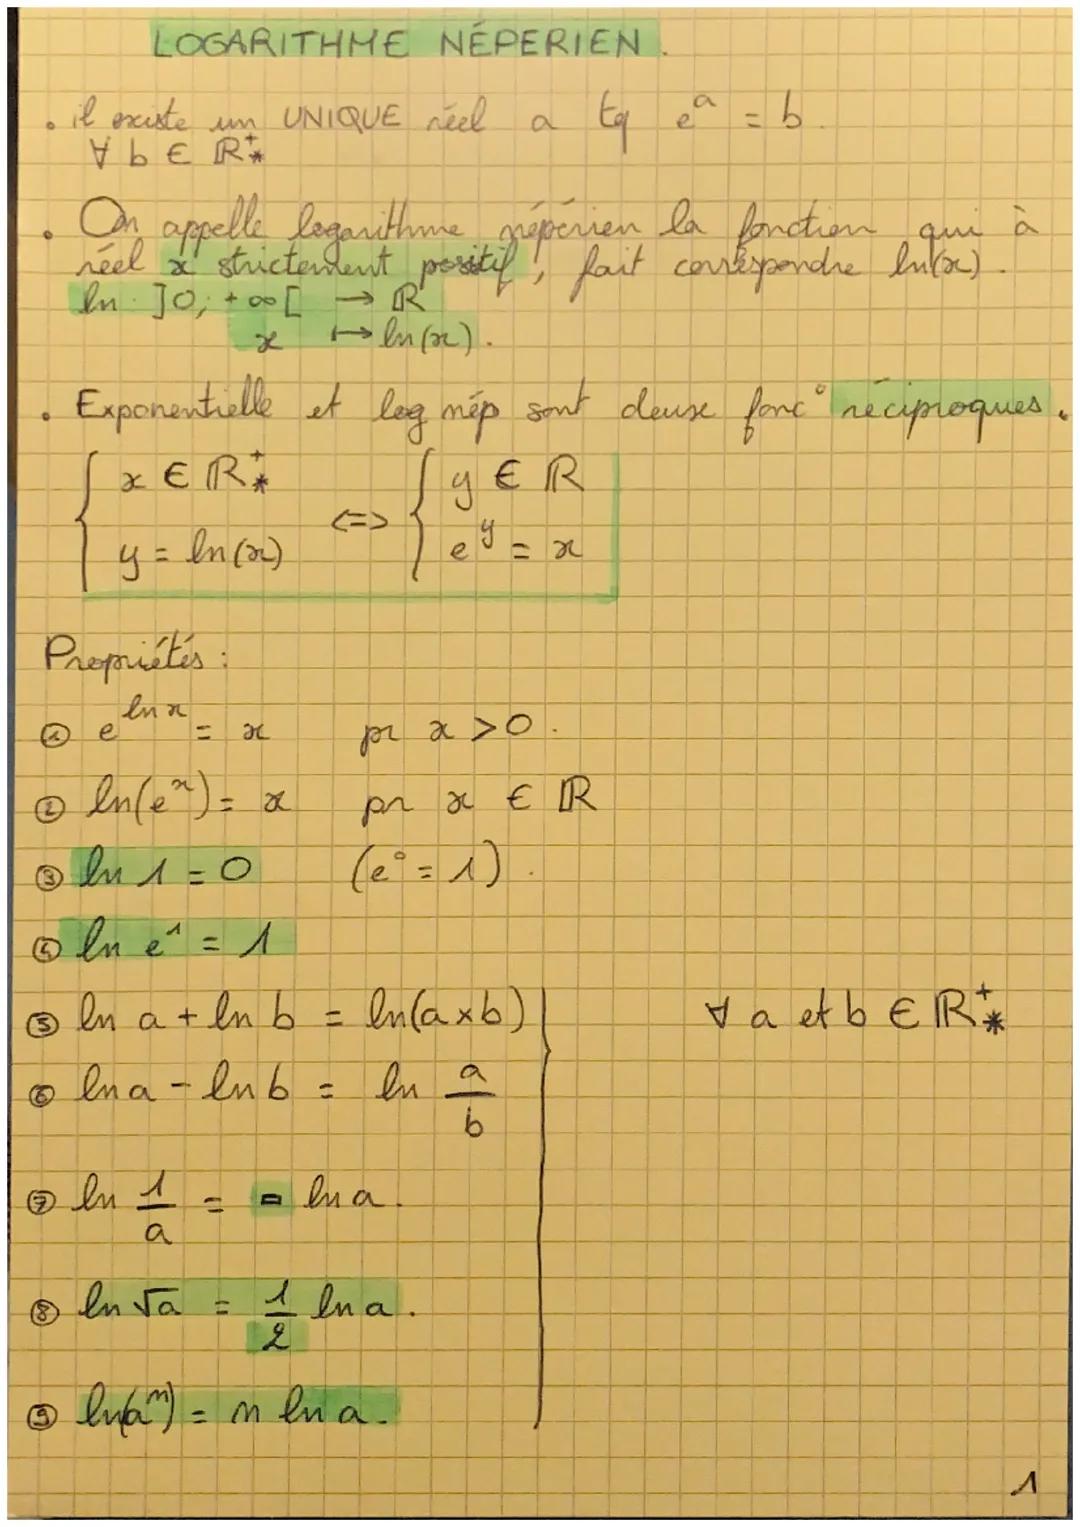 LOGARITHME NÉPERIEN.
• il existe un UNIQUE réel a tq e^a = b.
∀ b ∈ ℝ⁺*
• On appelle logarithme népérien la fonction qui à
réel x strictement positif, fait correspondre ln(x).
ln : ]0; +∞[ → ℝ
x ↦ ln(x).
• Exponentielle et log nép sont deux fonc° réciproques.
{ x ∈ ℝ⁺* <=> { y ∈ ℝ
y = ln(x) e^y = x
Propriétés :
① e^ln x = x pr x > 0.
② ln(e^x) = x pr x ∈ ℝ
③ ln 1 = 0 (e° = 1).
④ ln e^1 = 1
⑤ ln a + ln b = ln(a×b) ∀ a et b ∈ ℝ⁺*
⑥ ln a - ln b = ln a/b
⑦ ln 1/a = - ln a.
⑧ ln √a = 1/2 ln a.
⑨ ln(a^n) = n ln a.
1